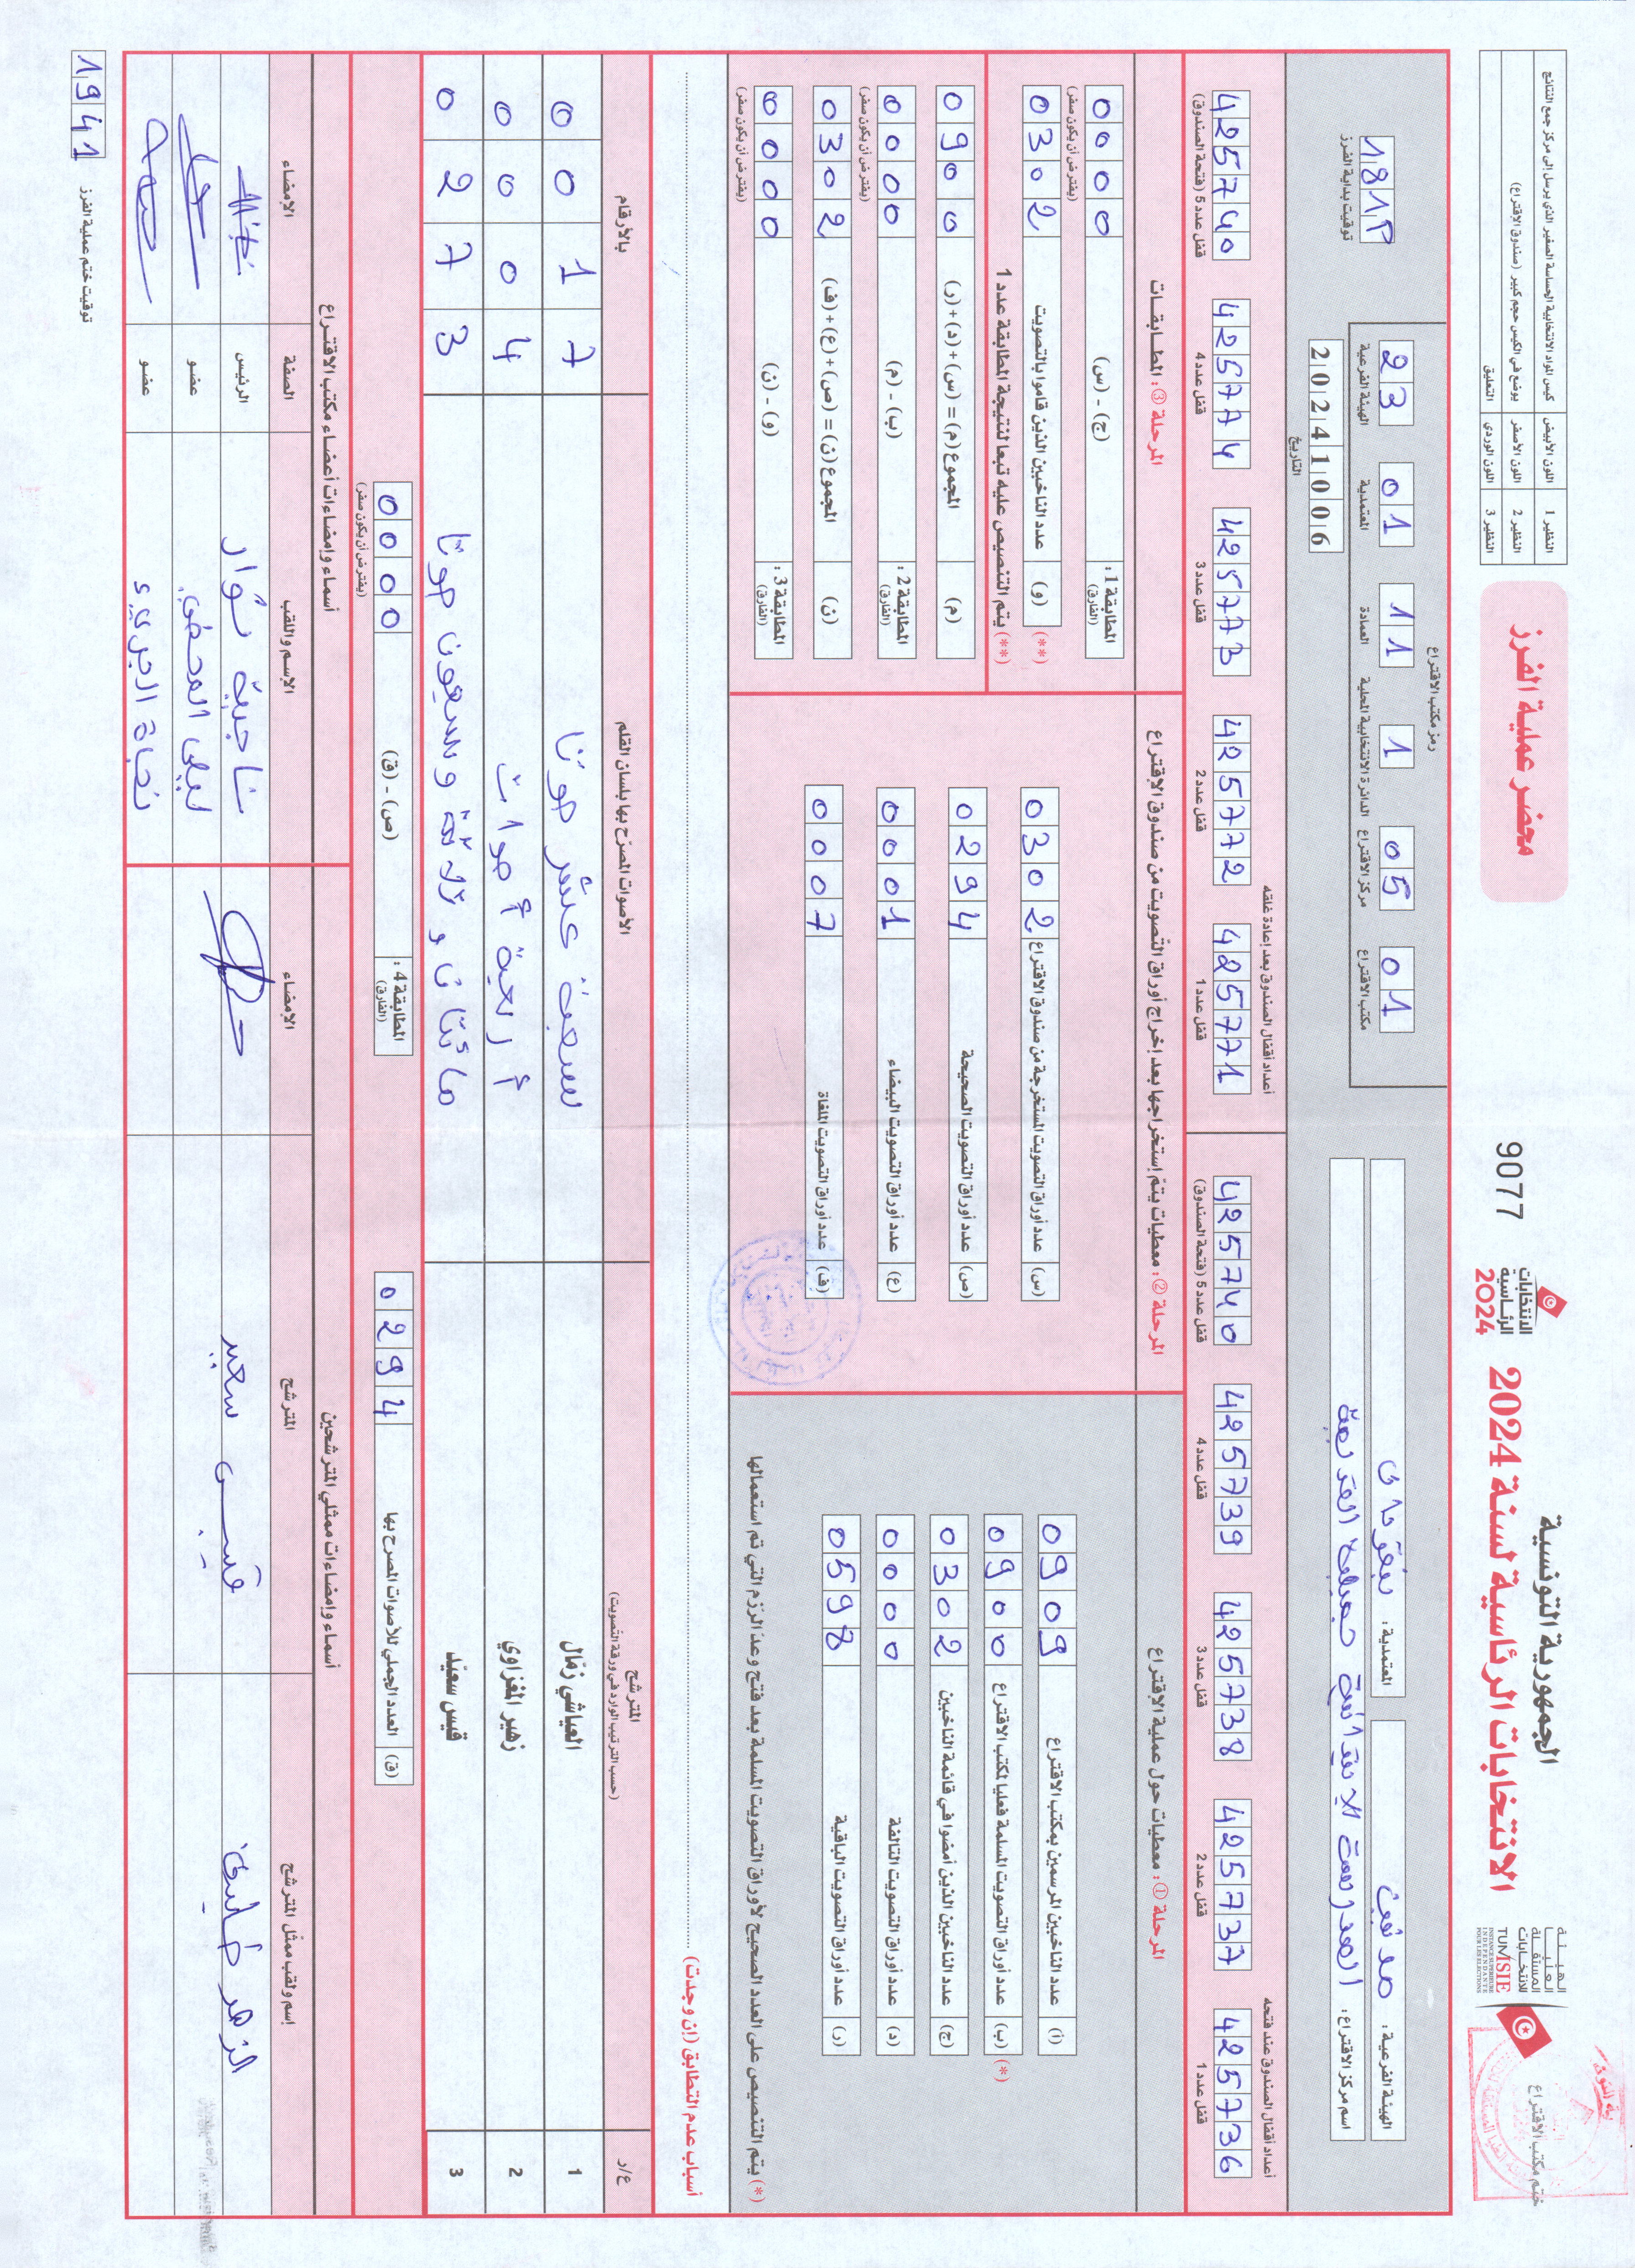 الجمهورية التونسية
الانتخابات الرئاسية لسنة 2024
الانتخابات
الرئاسية
2024
9077
الهيئة
العليا
المستقلة
للانتخابات
TUNISIE
INSTANCE SUPERIEURE
INDEPENDANTE
POUR LES ELECTIONS
ختم مكتب الاقتراع
محضر عملية الفرز
النظير 1 اللون الأبيض كيس المواد الانتخابية الحساسة الصغير الذي يرسل إلى مركز جمع النتائج
النظير 2 اللون الأصفر يوضع في الكيس حجم كبير (صندوق الاقتراع)
النظير 3 اللون الوردي التعليق
الهيئة الفرعية: مدنين
المعتمدية: بنقردان
اسم مركز الاقتراع: المدرسة الابتدائية جميلة القريبة
رمز مكتب الاقتراع
23 01 11 1 05 01
الهيئة الفرعية المعتمدية العمادة الدائرة الانتخابية المحلية مركز الاقتراع مكتب الاقتراع
20241006
التاريخ
181P
توقيت بداية الفرز
أعداد أقفال الصندوق عند فتحه
4257736 قفل عدد 1
4257737 قفل عدد 2
4257738 قفل عدد 3
4257739 قفل عدد 4
4257740 قفل عدد 5 (فتحة الصندوق)
أعداد أقفال الصندوق بعد إعادة غلقه
4257771 قفل عدد 1
4257772 قفل عدد 2
4257773 قفل عدد 3
4257774 قفل عدد 4
4257740 قفل عدد 5 (فتحة الصندوق)
المرحلة ①: معطيات حول عملية الاقتراع
(أ) عدد الناخبين المرسمين بمكتب الاقتراع 0909
(*) (ب) عدد أوراق التصويت المسلمة فعليا لمكتب الاقتراع 0900
(ج) عدد الناخبين الذين أمضوا في قائمة الناخبين 0302
(د) عدد أوراق التصويت التالفة 0000
(ر) عدد أوراق التصويت الباقية 0598
(*) يتم التنصيص على العدد الصحيح لأوراق التصويت المسلمة بعد فتح وعد الرزم التي تم استعمالها
المرحلة ②: معطيات يتم إستخراجها بعد إخراج أوراق التصويت من صندوق الاقتراع
(س) عدد أوراق التصويت المستخرجة من صندوق الاقتراع 0302
(ص) عدد أوراق التصويت الصحيحة 0294
(ع) عدد أوراق التصويت البيضاء 0001
(ف) عدد أوراق التصويت الملغاة 0007
المرحلة ③: المطابقات
المطابقة 1: (الفارق) (ج) - (س) 0000
(يفترض أن يكون صفر)
(**) (و) عدد الناخبين الذين قاموا بالتصويت 0302
(**) يتم التنصيص عليه تبعا لنتيجة المطابقة عدد 1
(م) المجموع (م) = (س)+(د)+(ر) 0900
المطابقة 2: (الفارق) (ب) - (م) 0000
(يفترض أن يكون صفر)
(ن) المجموع (ن) = (ص)+(ع)+(ف) 0302
المطابقة 3: (الفارق) (و) - (ن) 0000
(يفترض أن يكون صفر)
أسباب عدم التطابق (إن وجدت)
ع/ر المترشح (حسب الترتيب الوارد في ورقة التصويت) الأصوات المصرّح بها بلسان القلم بالأرقام
1 العياشي زمّال سبعة عشر صوتا 0017
2 زهير المغزاوي أربعة أصوات 0004
3 قيس سعيّد مائتان و ثلاثة وسبعون صوتا 0273
(ق) العدد الجملي للأصوات المصرح بها 0294
المطابقة 4: (الفارق) (ص) - (ق) 0000
(يفترض أن يكون صفر)
أسماء وإمضاءات ممثلي المترشحين
إسم ولقب ممثّل المترشح المترشح الإمضاء
قيس سعيد
أسماء وإمضاءات أعضاء مكتب الاقتراع
الإسم واللقب الصفة الإمضاء
ناجية نوار الرئيس
عضو
نجاة الجريء عضو
1941 توقيت ختم عملية الفرز